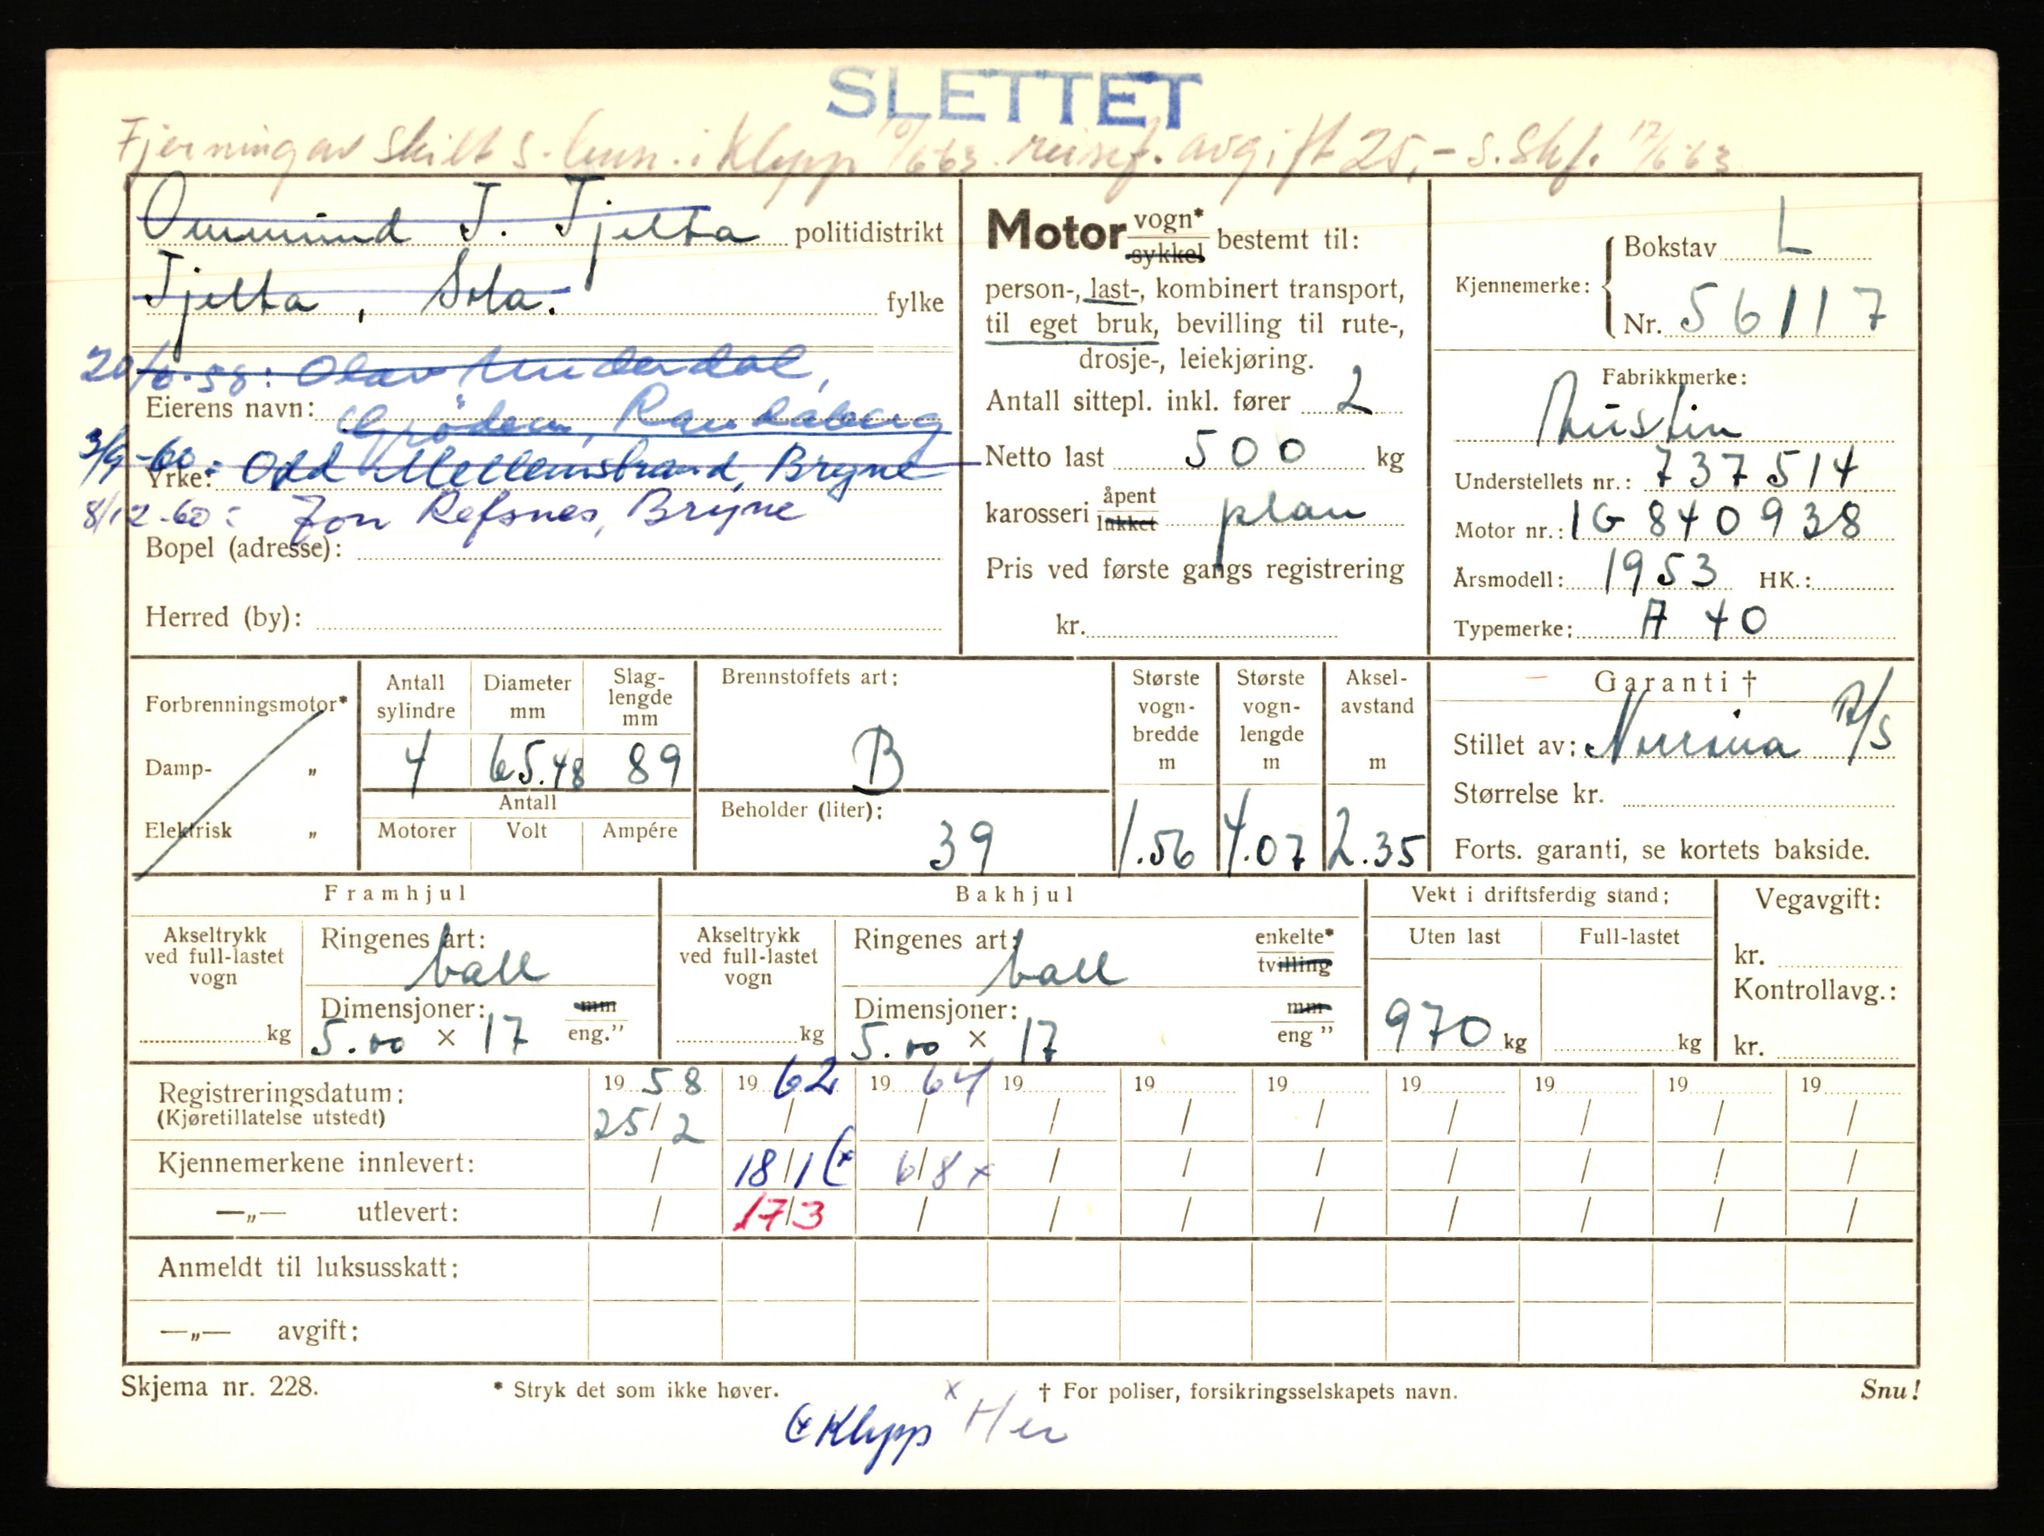 SLETTET
Fjerning av skilt s. i Klepp 10/6 63. avgift 25,- s. 17/6 63
Ommund T. Tjelta politidistrikt
Tjelta, Sola. fylke
20/6-58: Olav Underdal,
Eierens navn: Grödem, Randaberg
3/9-60: Odd Mellemstrand, Bryne
Yrke:
8/12-60: Jon Refsnes, Bryne
Bopel (adresse):
Herred (by):
Motor vogn* sykkel bestemt til:
person-, last-, kombinert transport,
til eget bruk, bevilling til rute-,
drosje-, leiekjøring.
Antall sittepl. inkl. fører 2
Netto last 500 kg
karosseri åpent lukket plan
Pris ved første gangs registrering
kr.
Kjennemerke: Bokstav L
Nr. 56117
Fabrikkmerke:
Austin
Understellets nr.: 737514
Motor nr.: 1G 840938
Årsmodell: 1953 HK.:
Typemerke: A 40
Forbrenningsmotor*
Damp- „
Elektrisk „
Antall sylindre Diameter mm Slag-lengde mm
4 65.48 89
Antall
Motorer Volt Ampére
Brennstoffets art:
B
Beholder (liter):
39
Største vogn-bredde m Største vogn-lengde m Aksel-avstand m
1.56 4.07 2.35
Garanti †
Stillet av: Norrøna A/S
Størrelse kr.
Forts. garanti, se kortets bakside.
Framhjul
Akseltrykk ved full-lastet vogn
kg
Ringenes art:
ball
Dimensjoner: mm
5.00 × 17 eng."
Bakhjul
Akseltrykk ved full-lastet vogn
kg
Ringenes art: enkelte* tvilling
ball
Dimensjoner: mm
5.00 × 17 eng "
Vekt i driftsferdig stand:
Uten last Full-lastet
970 kg kg
Vegavgift:
kr.
Kontrollavg.:
kr.
Registreringsdatum: 19 58 19 62 19 64 19 19 19 19 19 19 19
(Kjøretillatelse utstedt) 25/2 / / / / / / / / /
Kjennemerkene innlevert: / 18/1 (* 6/8 x / / / / / / /
—„— utlevert: / 17/3 / / / / / / / /
Anmeldt til luksusskatt:
—„— avgift:
Skjema nr. 228. * Stryk det som ikke høver. † For poliser, forsikringsselskapets navn. Snu!
(* Klepp x Her